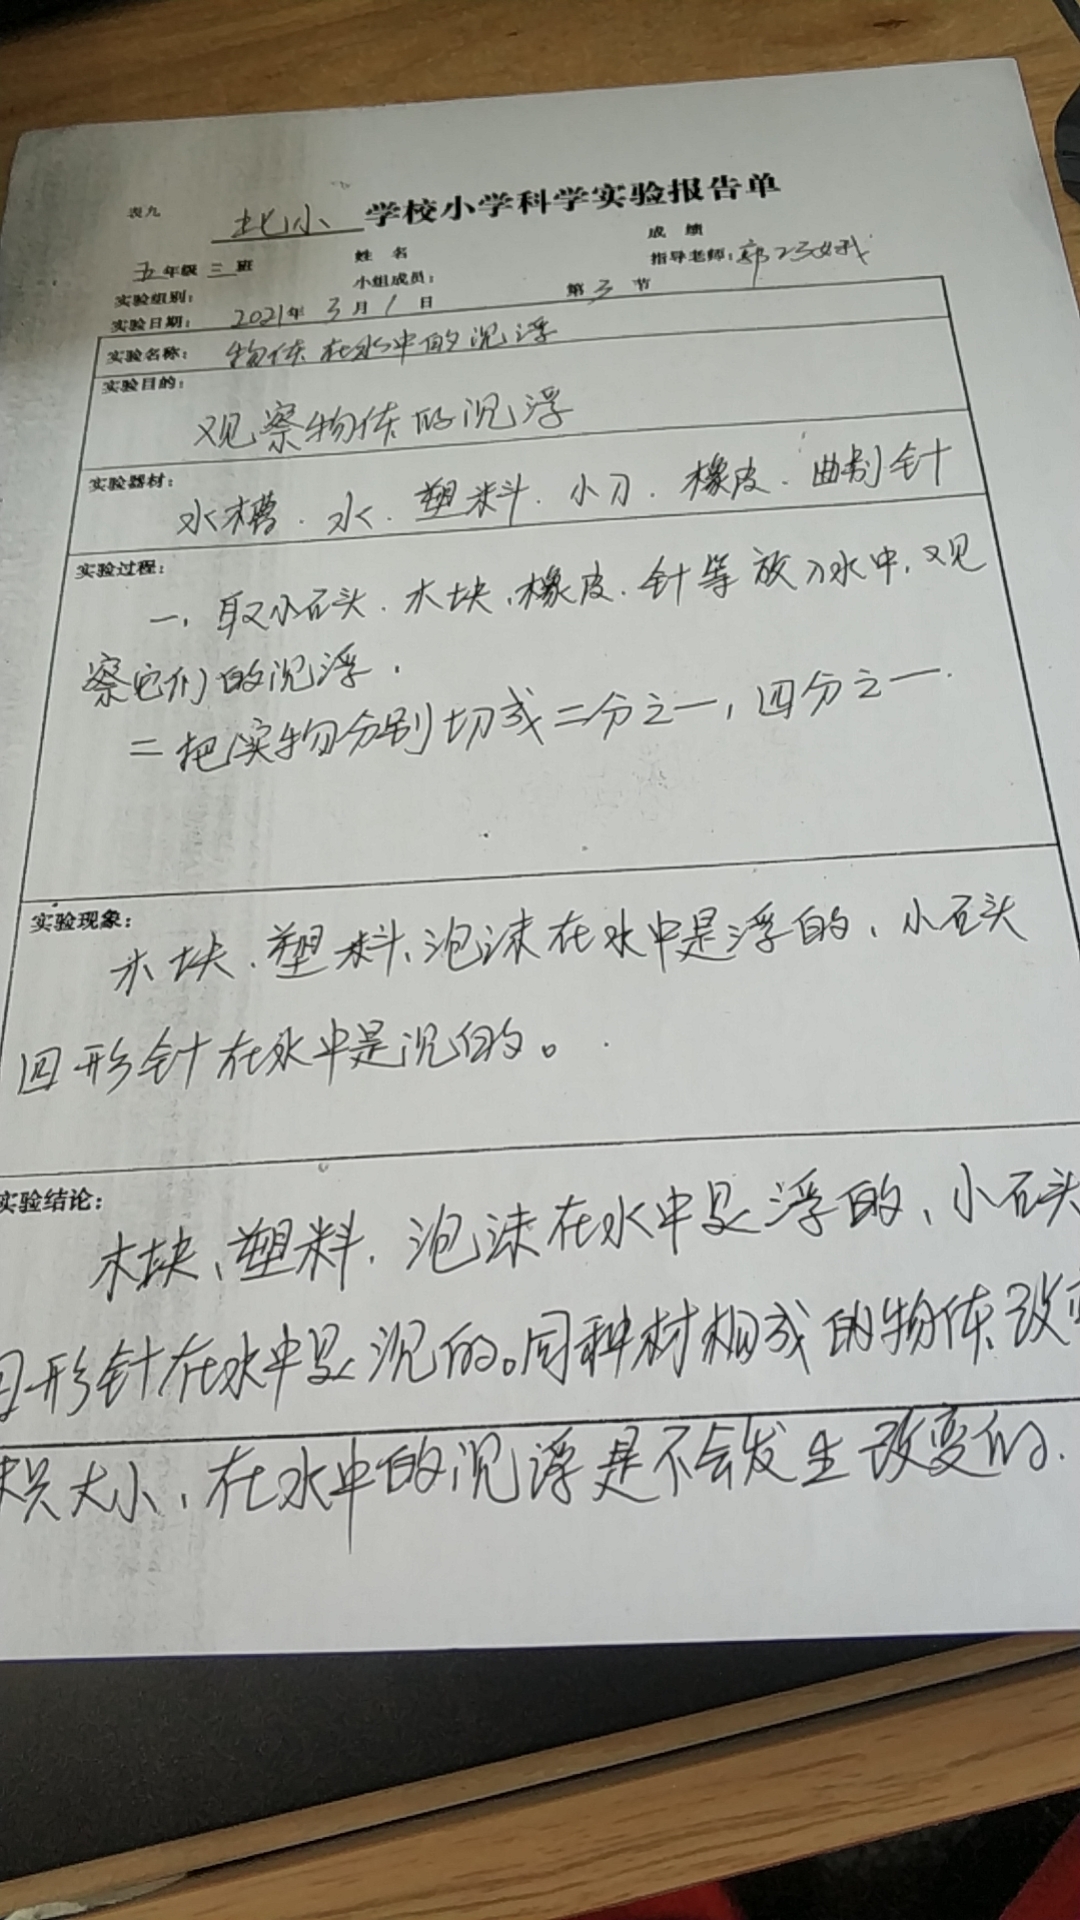 表九
北小 学校小学科学实验报告单
五年级 三 班 姓 名 成 绩
实验组别: 小组成员: 指导老师: 郭
实验日期: 2021年 3月 1 日 第 3 节
实验名称: 物体在水中的沉浮
实验目的:
观察物体的沉浮
实验器材:
水槽、水、塑料、小刀、橡皮、曲别针
实验过程:
一, 取小石头、木块、橡皮、针等放入水中, 观
察它们的沉浮.
二 把实物分别切成二分之一, 四分之一.
实验现象:
木块、塑料、泡沫在水中是浮的、小石头
回形针在水中是沉的。
实验结论:
木块、塑料、泡沫在水中是浮的、小石头
形针在水中是沉的。同种材构成的物体、改
大小, 在水中的沉浮是不会发生改变的.